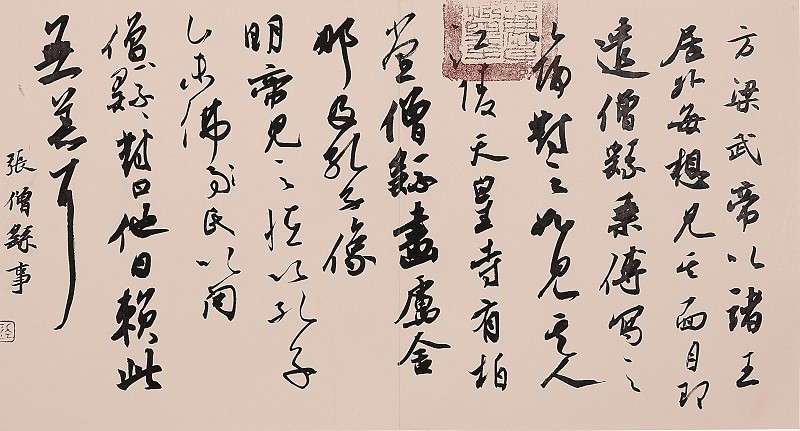 方梁武帝以諸王
居外每想見其面目即
遣僧繇乘傳寫之
以歸對之如見其人
江陵天皇寺有柏
堂僧繇畫盧舍
那及孔子像
明帝見之怪以孔子
佛氏以問
僧繇對曰他日賴此
無恙耳
張僧繇事